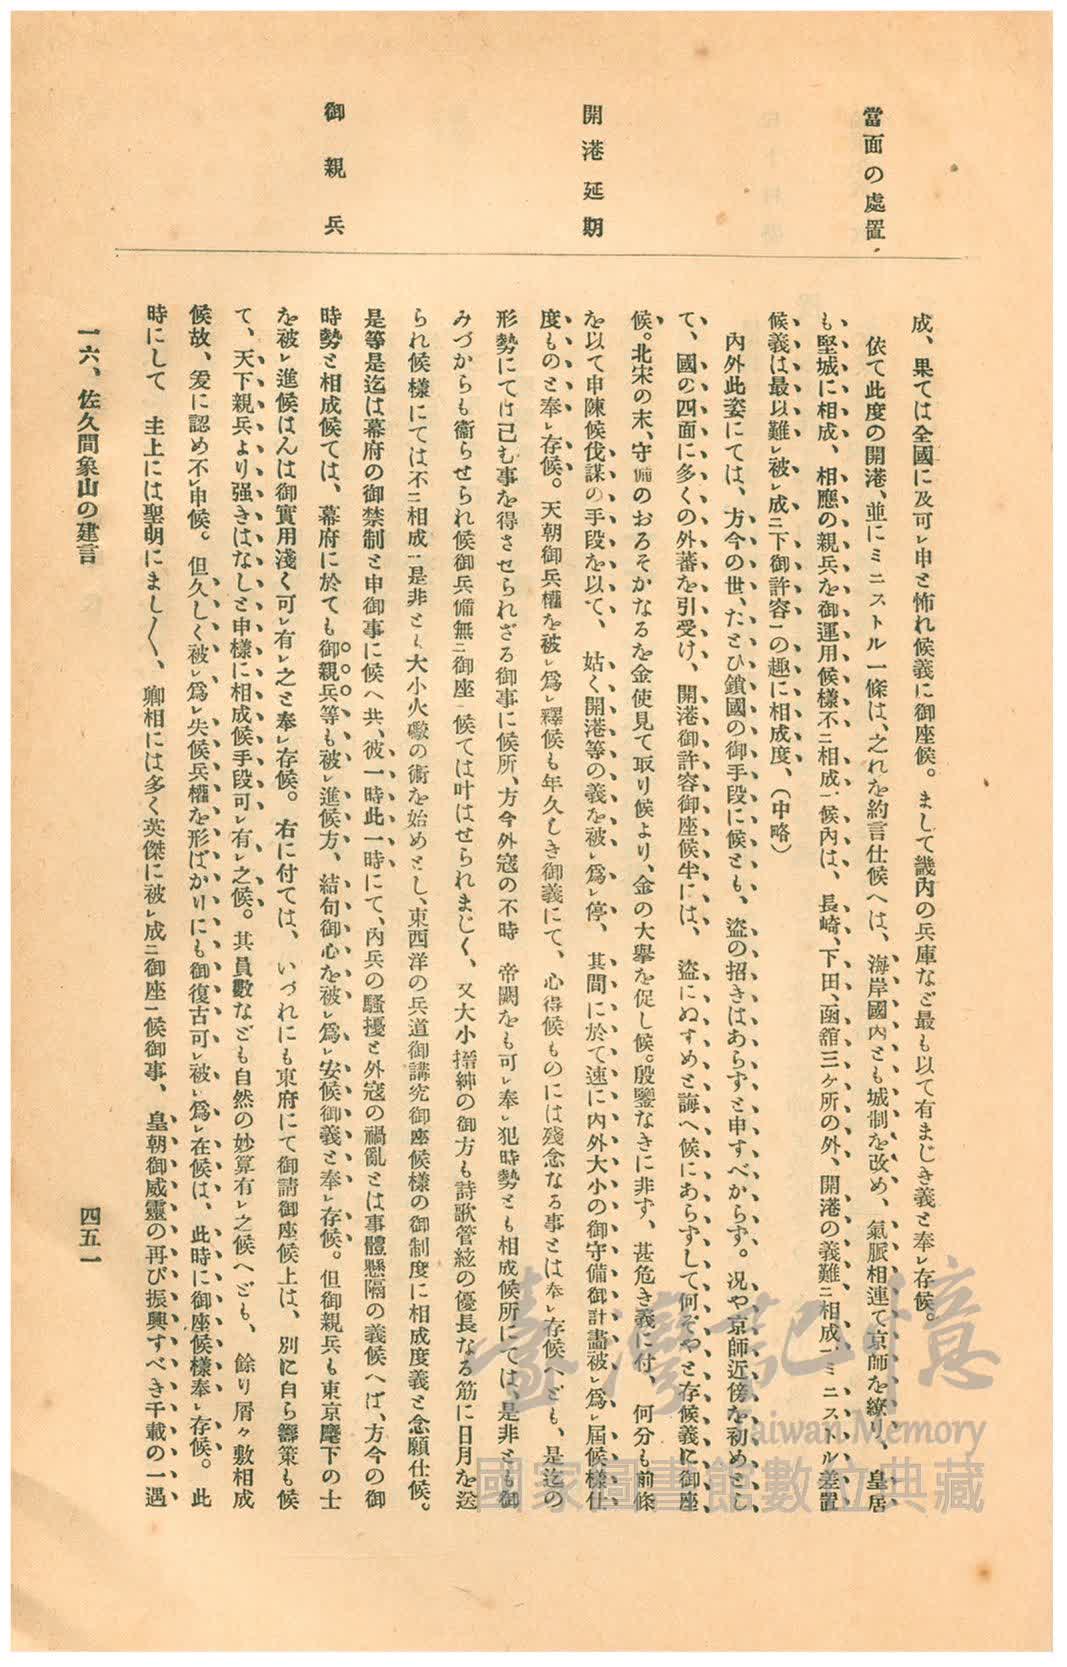 當面の處置
開港延期
御親兵
成、果ては全國に及可レ申と怖れ候義に御座候。まして畿內の兵庫など最も以て有まじき義と奉レ存候。
依て此度の開港、並にミニストル一條は、之れを約言仕候へは、海岸國內とも城制を改め、氣脈相連て京師を繚り、皇居
も堅城に相成、相應の親兵を御運用候樣不ニ相成一候內は、長崎、下田、函館三ケ所の外、開港の義難ニ相成一ミニストル差置
候義は最以難レ被レ成ニ下御許容一の趣に相成度、（中略）
內外此姿にては、方今の世、たとひ鎖國の御手段に候とも、盜の招きはあらずと申すべからず。況や京師近傍を初めとし
て、國の四面に多くの外蕃を引受け、開港御許容御座候半には、盜にぬすめと誨へ候にあらずして何ぞやと存候義に御座
候。北宋の末、守備のおろそかなるを金使見て取り候より、金の大擧を促し候。殷鑒なきに非ず、甚危き義に付、何分も前條
を以て申陳候伐謀の手段を以て、姑く開港等の義を被レ爲レ停、其間に於て速に內外大小の御守備御計畫被レ爲レ屆候樣仕
度ものと奉レ存候。天朝御兵權を被レ爲レ釋候も年久しき御義にて、心得候ものには殘念なる事とは奉レ存候へども、是迄の
形勢にては已む事を得させられざる御事に候所、方今外寇の不時　帝闕をも可レ奉レ犯時勢とも相成候所にては、是非とも御
みづからも衞らせられ候御兵備無ニ御座一候ては叶はせられまじく、又大小搢紳の御方も詩歌管絃の優長なる筋に日月を送
られ候樣にては不ニ相成一是非とも大小火礮の術を始めとし、東西洋の兵道御講究御座候樣の御制度に相成度義と念願仕候。
是等是迄は幕府の御禁制と申御事に候へ共、彼一時此一時にて、內兵の騷擾と外寇の禍亂とは事體懸隔の義候へば、方今の御
時勢と相成候ては、幕府に於ても御親兵等も被レ進候方、結句御心を被レ爲レ安候御義と奉レ存候。但御親兵も東京麾下の士
を被レ進候はんは御實用淺く可レ有レ之と奉レ存候。右に付ては、いづれにも東府にて御請御座候上は、別に自ら籌策も候
て、天下親兵より强きはなしと申樣に相成候手段可レ有レ之候。其員數なども自然の妙算有レ之候へども、餘り屑々敷相成
候故、爰に認め不レ申候。但久しく被レ爲レ失候兵權を形ばかりにも御復古可レ被レ爲レ在候は、此時に御座候樣奉レ存候。此
時にして　主上には聖明にまし〳〵、卿相には多く英傑に被レ成ニ御座一候御事、皇朝御威靈の再び振興すべき千載の一遇
一六、佐久間象山の建言
四五一
臺灣記憶
Taiwan Memory
國家圖書館數位典藏